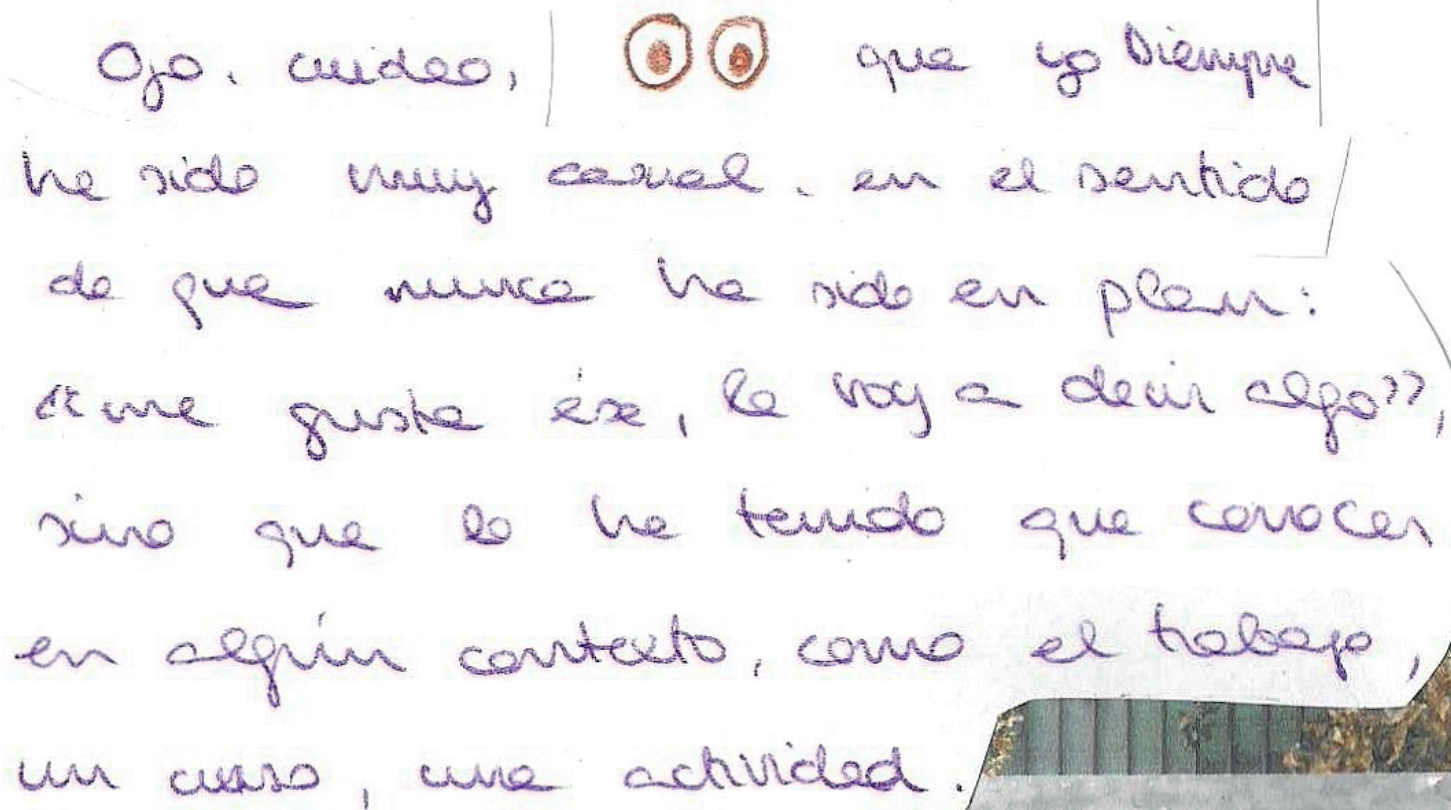 Ojo. cuidao, que yo siempre
he sido muy casual. en el sentido
de que nunca ha sido en plan:
«me gusta ése, le voy a decir algo»,
sino que lo he tenido que conocer
en algún contexto, como el trabajo,
un curso, una actividad.